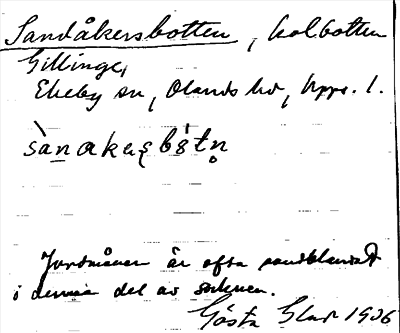 Sandåkersbotten, kolbotten
Gillinge,
Ekeby sn, Olands hd, Upps. l.
sànakeʂbòtn̥
Jordmånen är ofta sandblandad
i denna del av socknen.
Gösta Glad 1936